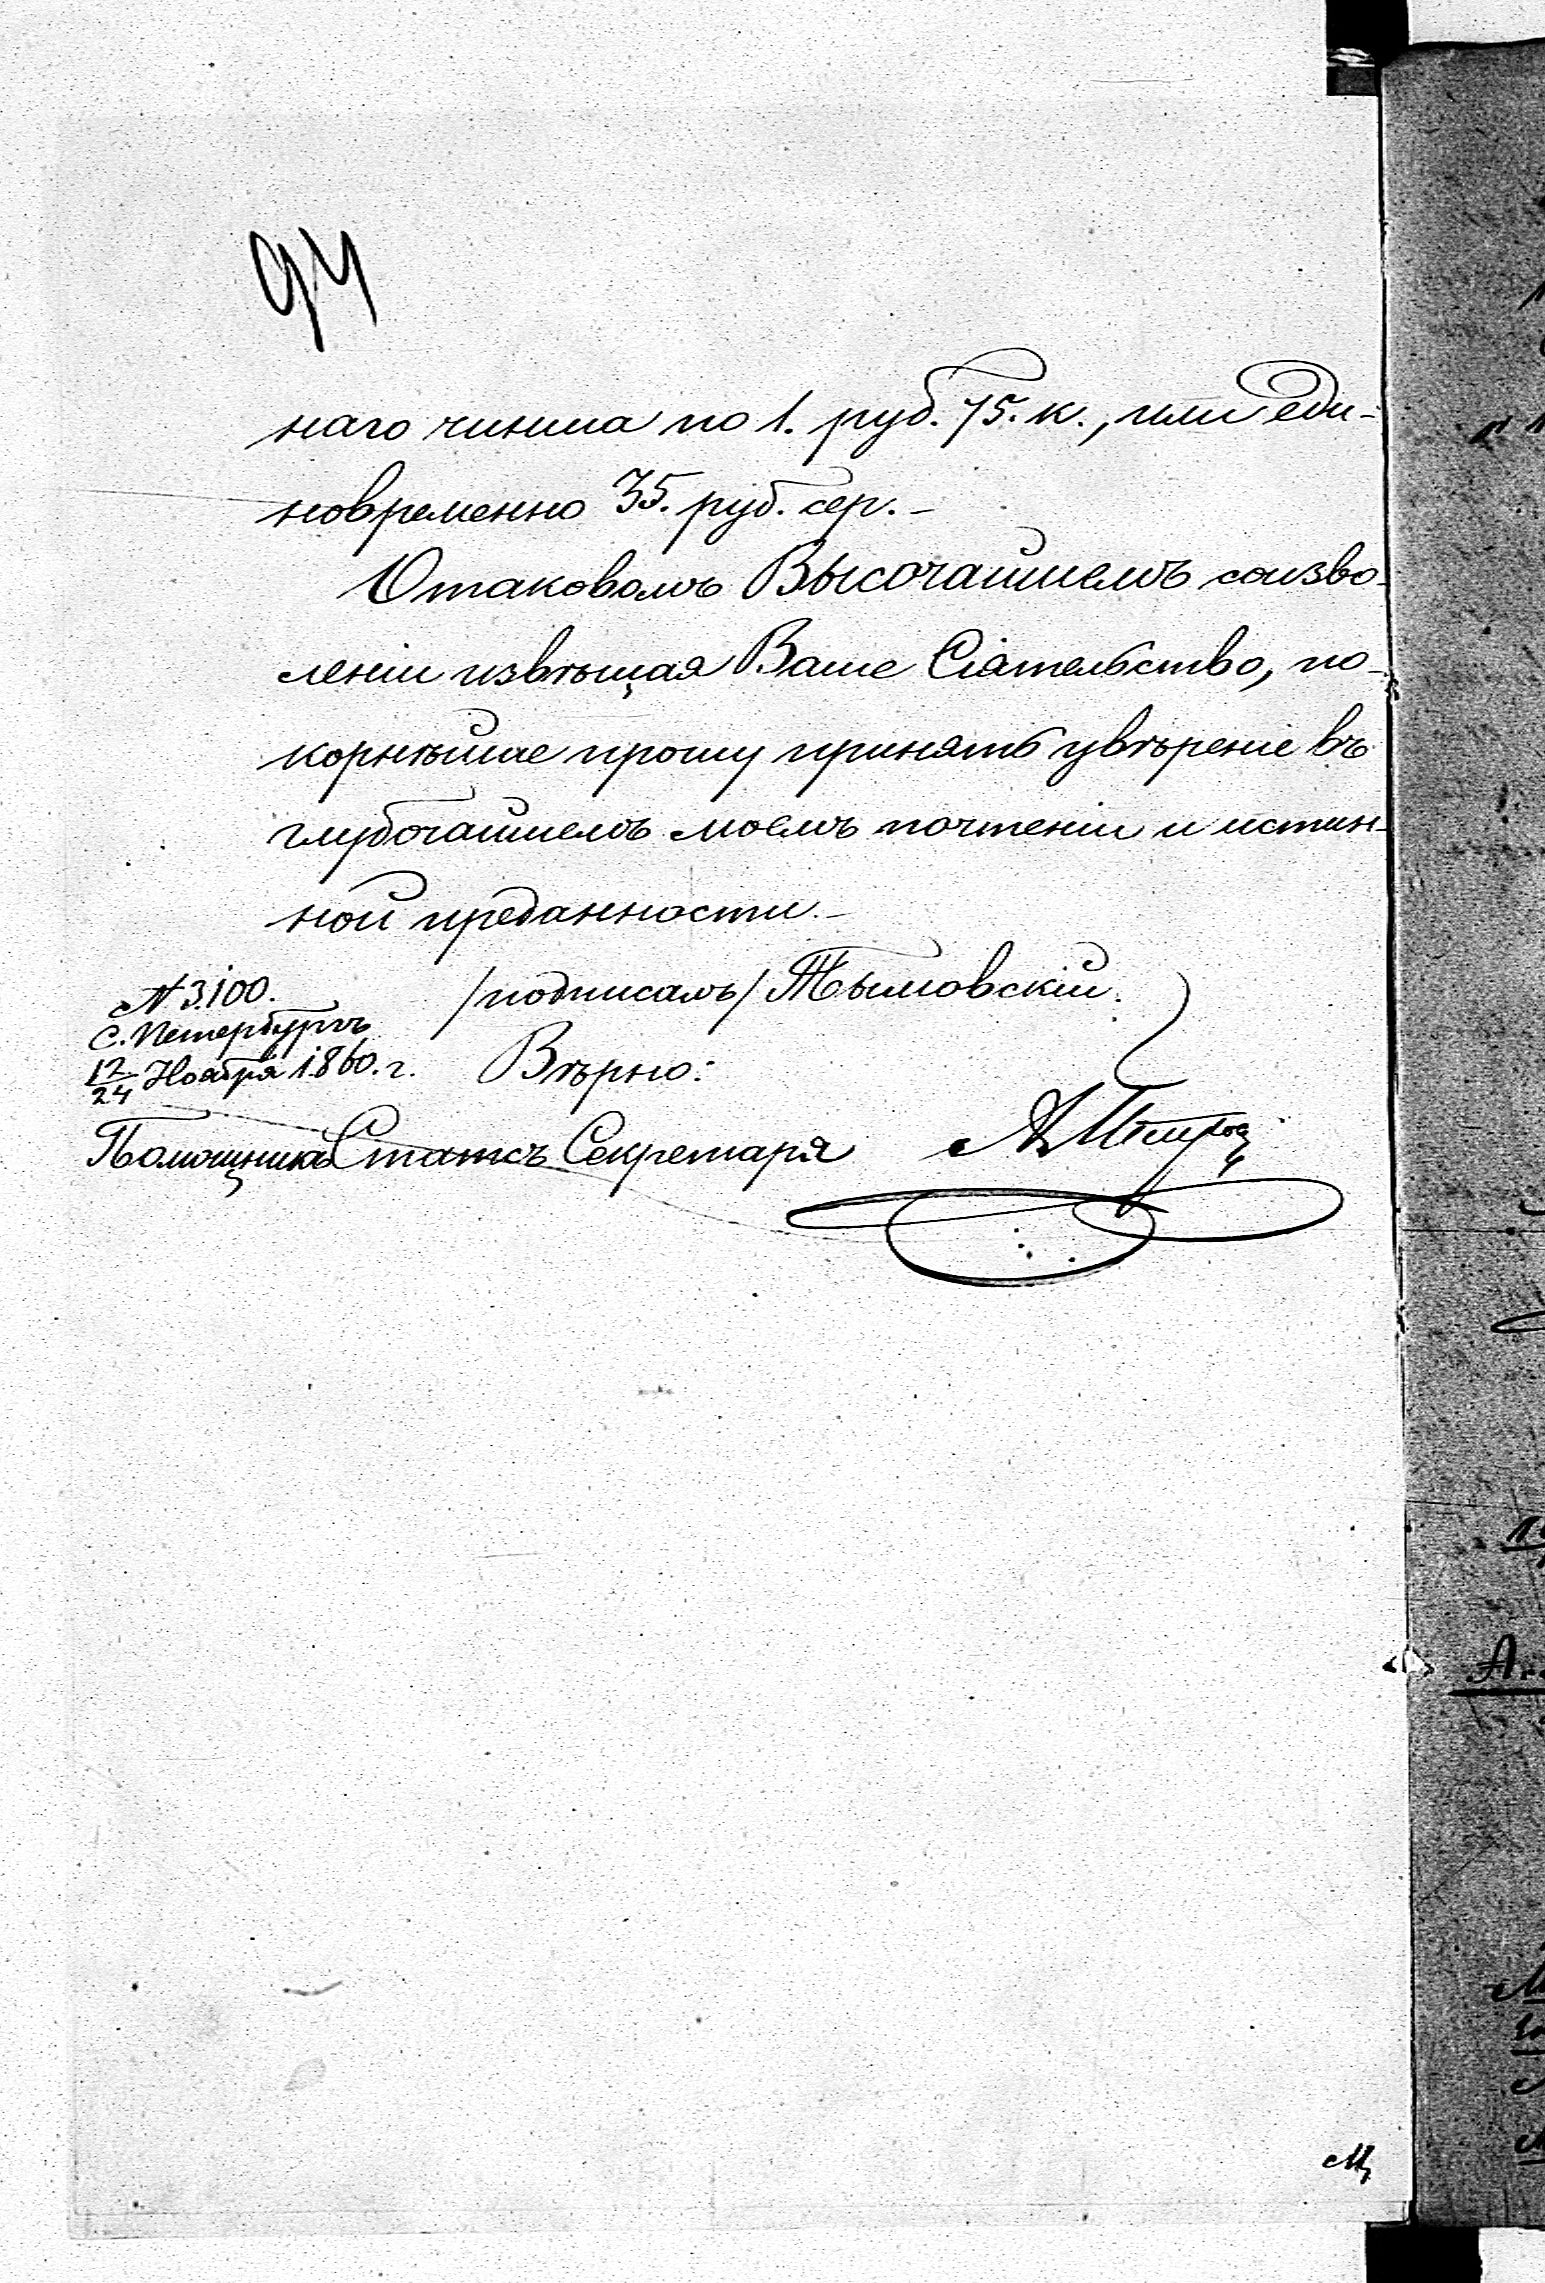 94
наго чинша по 1. руб. 75. к., или еди-
новременно 35. руб. сер. -
О таковомъ Высочайшемъ соизво-
леніи извѣщая Ваше Сіятельство, по-
корнѣйше прошу принять увѣреніе въ
глубочайшемъ моемъ почтеніи и истин-
ной преданности. -
/подписалъ/ Тымовскій.
N 3,100.
С. Петербургъ
12/24 Ноября 1860. г.
Вѣрно:
Помощникъ Статсъ Секретаря